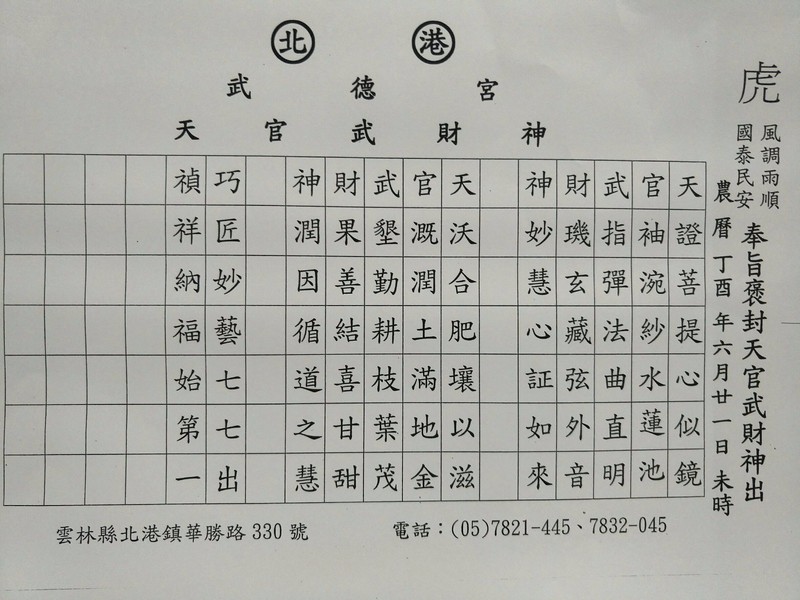 北港
武德宮
天官武財神
虎
風調雨順
國泰民安
奉旨褒封天官武財神出
農曆丁酉年六月廿一日未時
天證菩提心似鏡
官袖涴紗水蓮池
武指彈法曲直明
財璣玄藏弦外音
神妙慧心証如來
天沃合肥壤以滋
官溉潤土滿地金
武墾勤耕枝葉茂
財果善結喜甘甜
神潤因循道之慧
巧匠妙藝七七出
禎祥納福始第一
雲林縣北港鎮華勝路 330 號
電話：(05)7821-445、7832-045